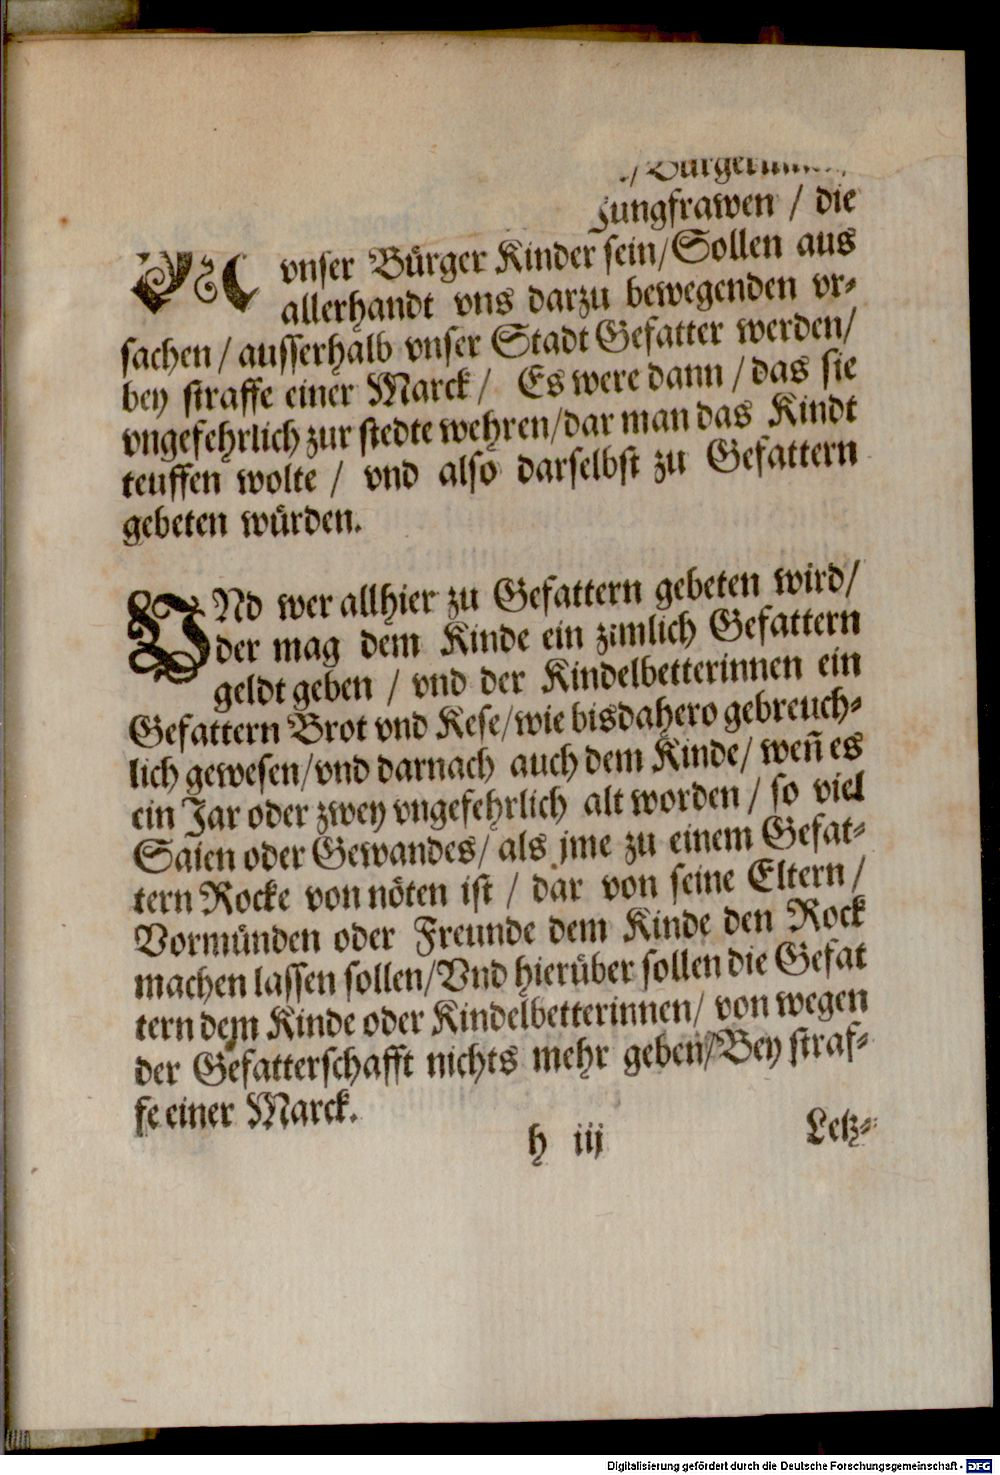 Jungfrawen / die
vnser Bürger Kinder sein/Sollen aus
allerhandt vns darzu bewegenden vr⸗
sachen / ausserhalb vnser Stadt Gefatter werden/
bey straffe einer Marck / Es were dann / das sie
vngefehrlich zur stedte wehren/dar man das Kindt
teuffen wolte / vnd also darselbst zu Gefattern
gebeten würden.
VNd wer allhier zu Gefattern gebeten wird/
der mag dem Kinde ein zimlich Gefattern
geldt geben / vnd der Kindelbetterinnen ein
Gefattern Brot vnd Kese/wie bisdahero gebreuch⸗
lich gewesen/vnd darnach auch dem Kinde/ weñ es
ein Jar oder zwey vngefehrlich alt worden / so viel
Saien oder Gewandes/ als jme zu einem Gefat⸗
tern Rocke von nöten ist / dar von seine Eltern /
Vormünden oder Freunde dem Kinde den Rock
machen lassen sollen/Vnd hierüber sollen die Gefat
tern dem Kinde oder Kindelbetterinnen/ von wegen
der Gefatterschafft nichts mehr geben/Bey straf⸗
fe einer Marck.
h iij Letz⸗
Digitalisierung gefördert durch die Deutsche Forschungsgemeinschaft - DFG